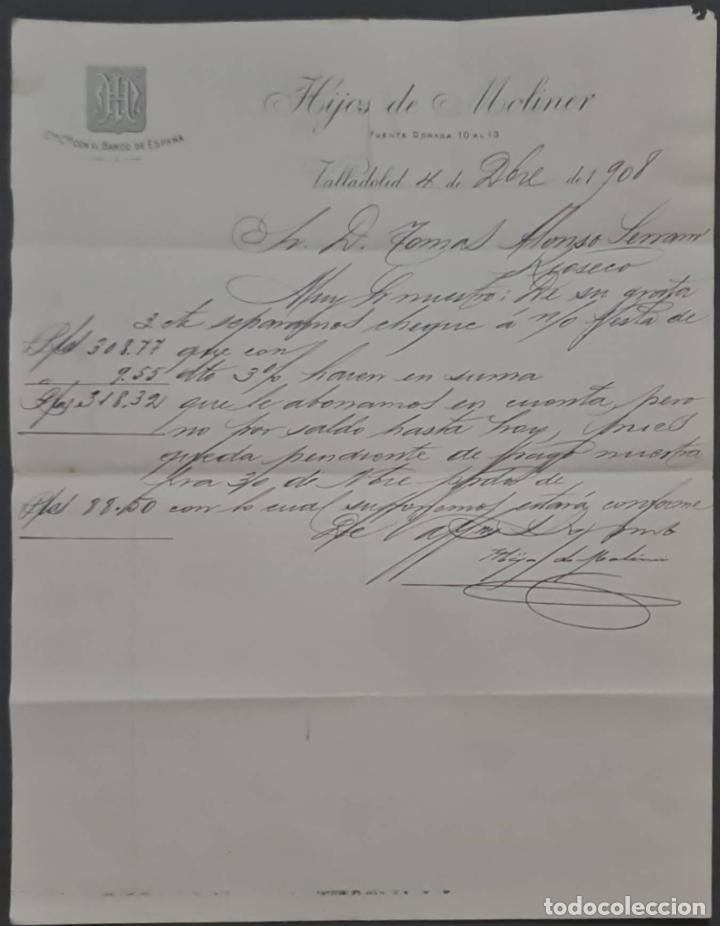 Cta. Cte. con el Banco de España
Hijos de Moliner
FUENTE DORADA 10 AL 13
Valladolid 4 de Dbre de 1908
Sr. D. Tomas Alonso Serrano
Rioseco
Muy Sr nuestro: De su grata
2 cte separamos cheque á n/o vista de
Ptas 308.77 que con
" 9.55 dto 3% hacen en suma
Ptas 318.32 que le abonamos en cuenta, pero
no por saldo hasta hoy, pues
queda pendiente de pago nuestra
fra 30 de Nbre de
Ptas 88.50 con lo cual suponemos estará conforme
De V. af
Hijos de Moliner
todocoleccion